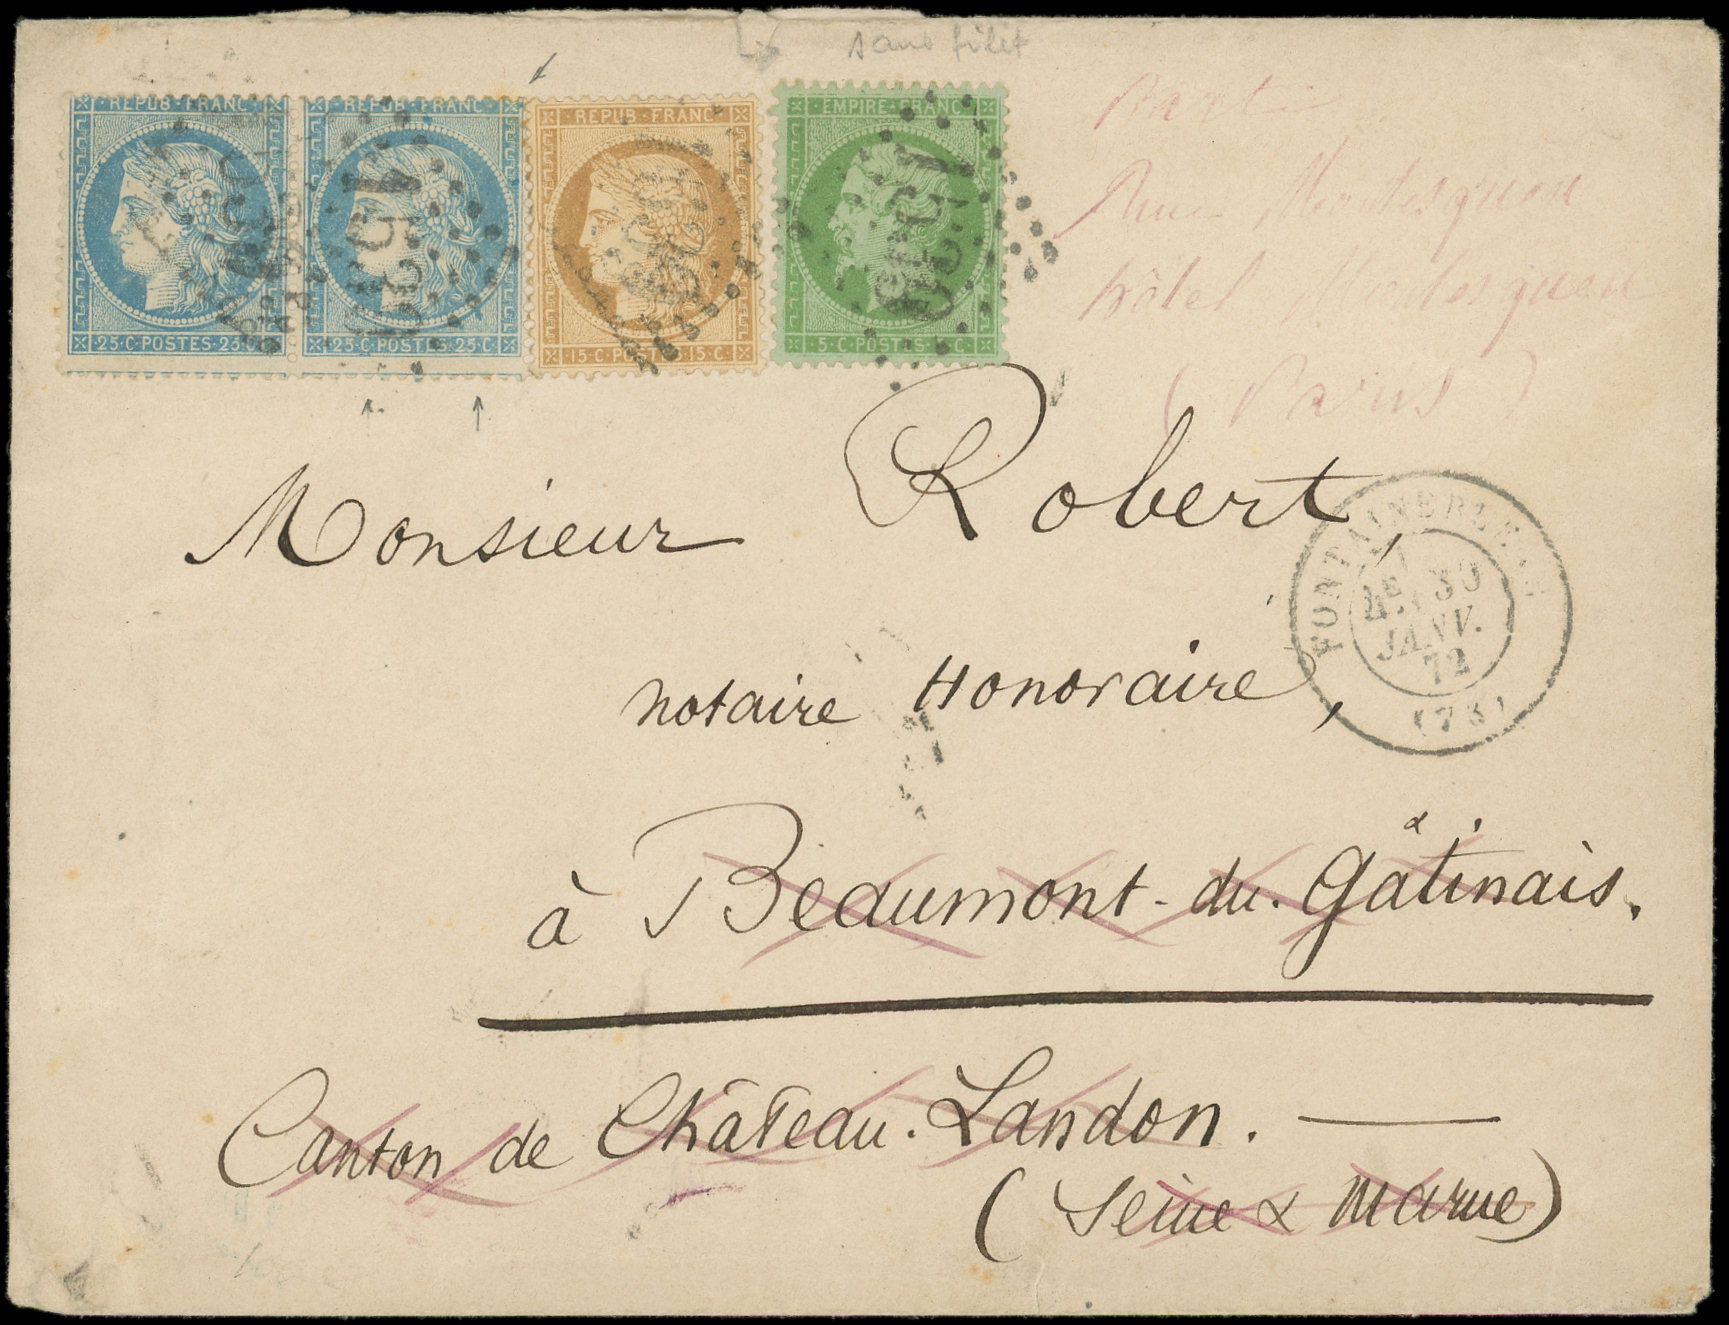 sans filet
REPUB·FRANC
REPUB·FRANC
REPUB·FRANC
EMPIRE·FRANC
25·C·POSTES·25·C
25·C·POSTES·25·C
15·C·POSTES·15·C
5·C·POSTES·5·C
1534
Rue Montesquieu
hôtel Montesquieu
(Paris)
Monsieur Robert,
FONTAINEBLEAU
4E 30
JANV.
72
(73)
notaire Honoraire,
à Beaumont-du-Gâtinais.
Canton de Château-Landon. —
(Seine & Marne)